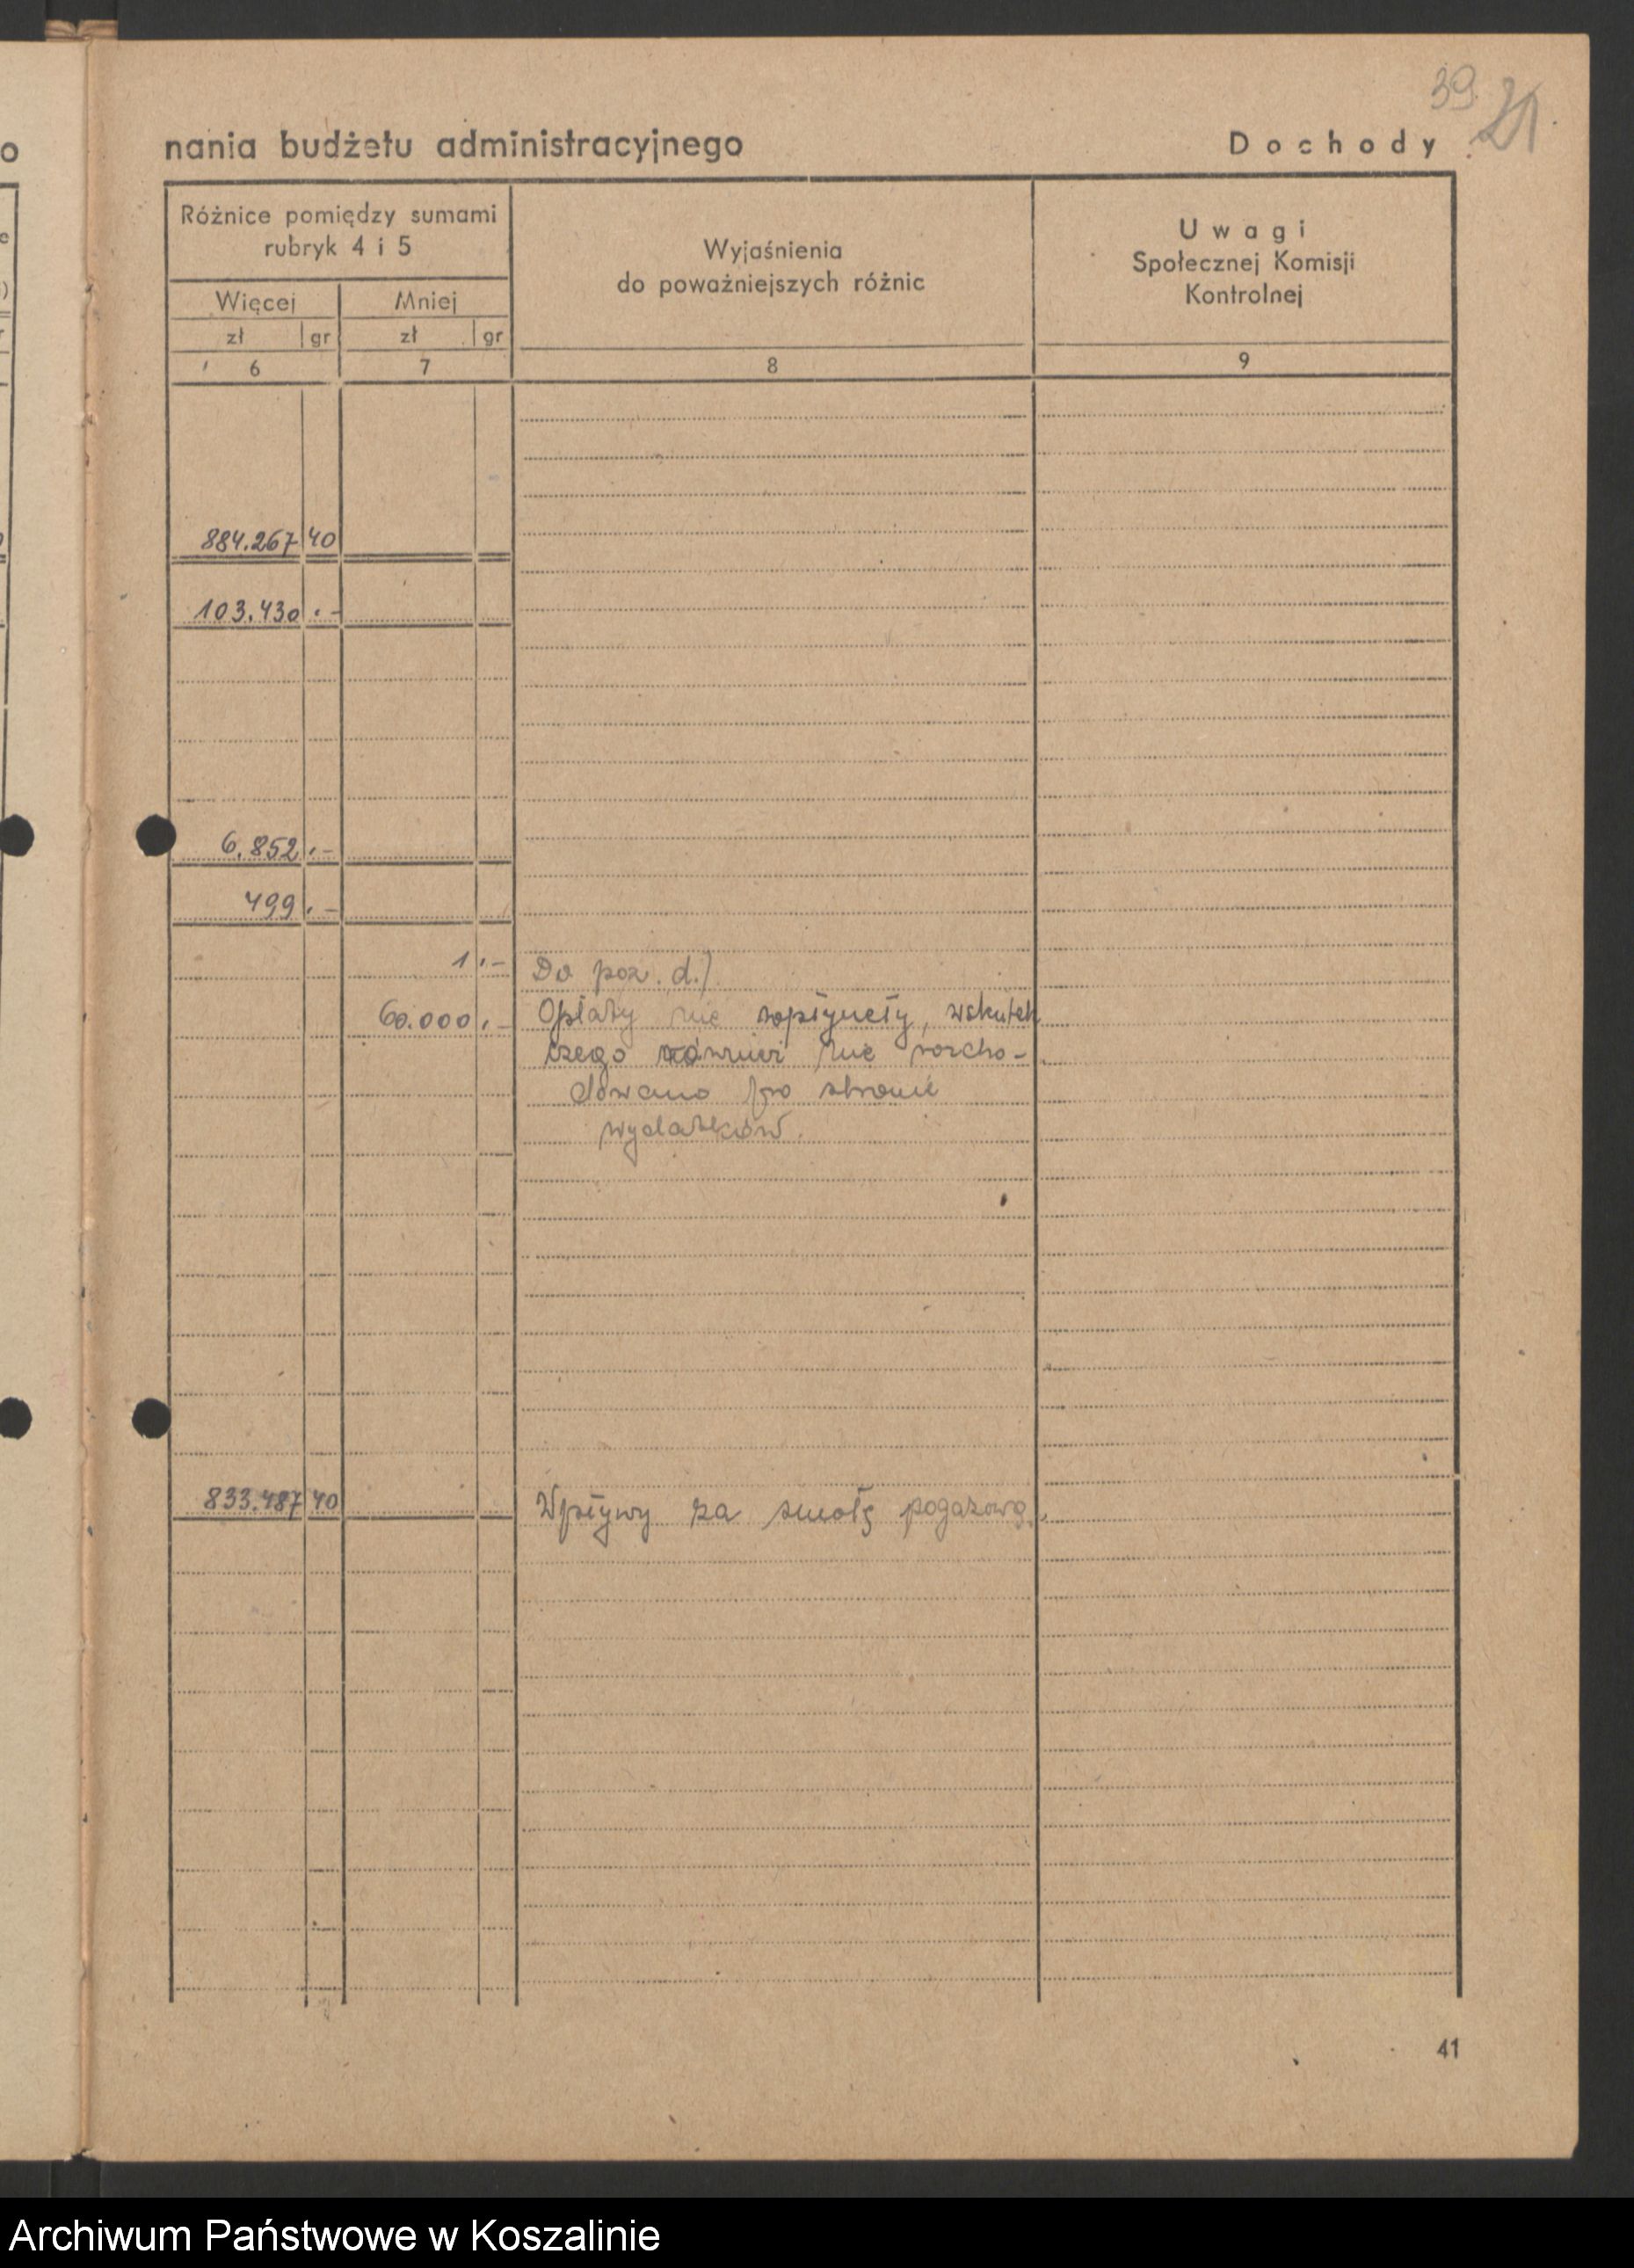 39. 21.
nania budżetu administracyjnego Dochody
Różnice pomiędzy sumami
rubryk 4 i 5
Więcej Mniej
zł gr zł gr
6 7
Wyjaśnienia
do poważniejszych różnic
8
Uwagi
Społecznej Komisji
Kontrolnej
9
884.267 40
103.430 .-
6.852 .-
499 .-
1 .- Do poz. d./
60.000 .- Opłaty nie wpłynęły, wskutek
czego również nie rozcho-
dowano po stronie
wydatków.
833.487 40 Wpływy za smołę pogazową.
41
Archiwum Państwowe w Koszalinie